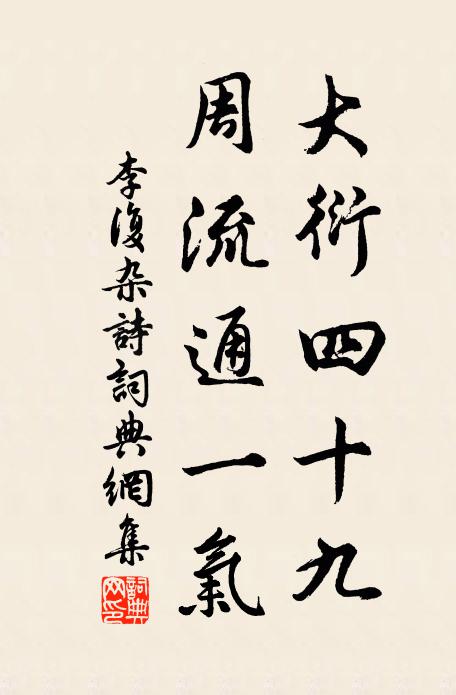 大衍四十九
周流通一氣
李復杂詩詞典網集
詞典网印